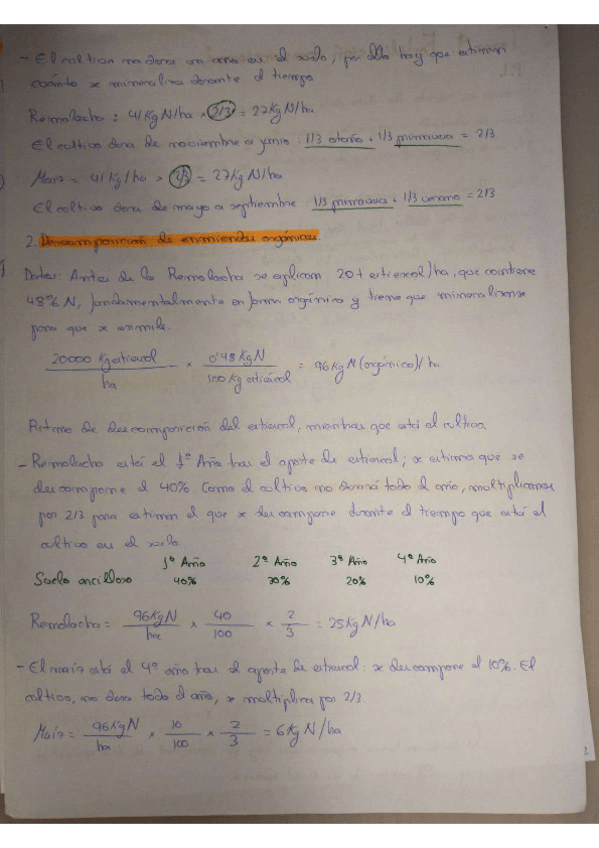 - El cultivo no dura un año en el suelo, por ello hay que estimar
cuánto se mineraliza durante el tiempo
Remolacha: 41 Kg N/ha x 2/3 = 27 Kg N/ha
El cultivo dura de noviembre a junio: 1/3 otoño + 1/3 primavera = 2/3
Maíz = 41 Kg/ha x 2/3 = 27 Kg N/ha
El cultivo dura de mayo a septiembre: 1/3 primavera + 1/3 verano = 2/3
2. Descomposición de enmiendas orgánicas.
Datos: Antes de la Remolacha se aplican 20 t estiércol/ha, que contiene
48% N, fundamentalmente en forma orgánica y tiene que mineralizarse
para que se asimile.
20000 Kg estiércol / ha x 0'48 Kg N / 100 Kg estiércol = 96 Kg N (orgánico)/ha
Ritmo de descomposición del estiércol, mientras que está el cultivo.
- Remolacha está el 1º Año tras el aporte de estiércol; se estima que se
descompone el 40% Como el cultivo no durará todo el año, multiplicamos
por 2/3 para estimar el que se descompone durante el tiempo que está el
cultivo en el suelo
1º Año 2º Año 3º Año 4º Año
Suelo arcilloso 40% 30% 20% 10%
Remolacha: 96 Kg N / ha x 40 / 100 x 2 / 3 = 25 Kg N/ha
- El maíz está el 4º año tras el aporte de estiércol: se descompone el 10%. El
cultivo, no dura todo el año, se multiplica por 2/3.
Maíz = 96 Kg N / ha x 10 / 100 x 2 / 3 = 6 Kg N/ha